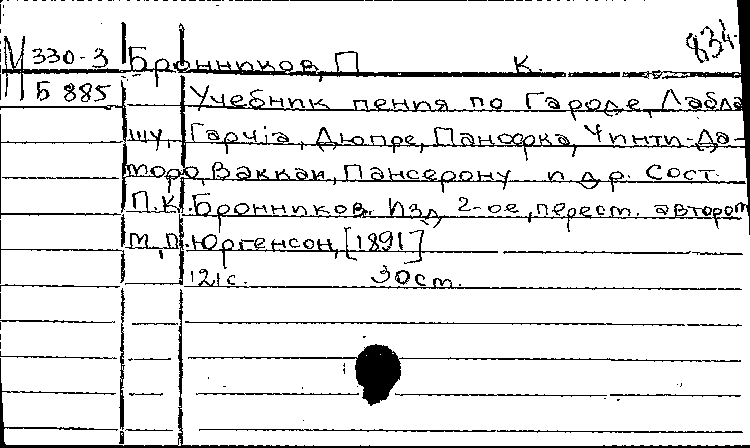 834
М 330-3 Бронников, П К.
Б 885 Учебник пения по Гароде, Лабла
шу, Гарчiа, Дюпре, Панофка, Чинти-Да-
моро, Ваккаи, Пансерону и др. Сост.
П.К. Бронников. Изд. 2-ое, перест. автором
м., П. Юргенсон, [1891]
121 с. 30 ст.